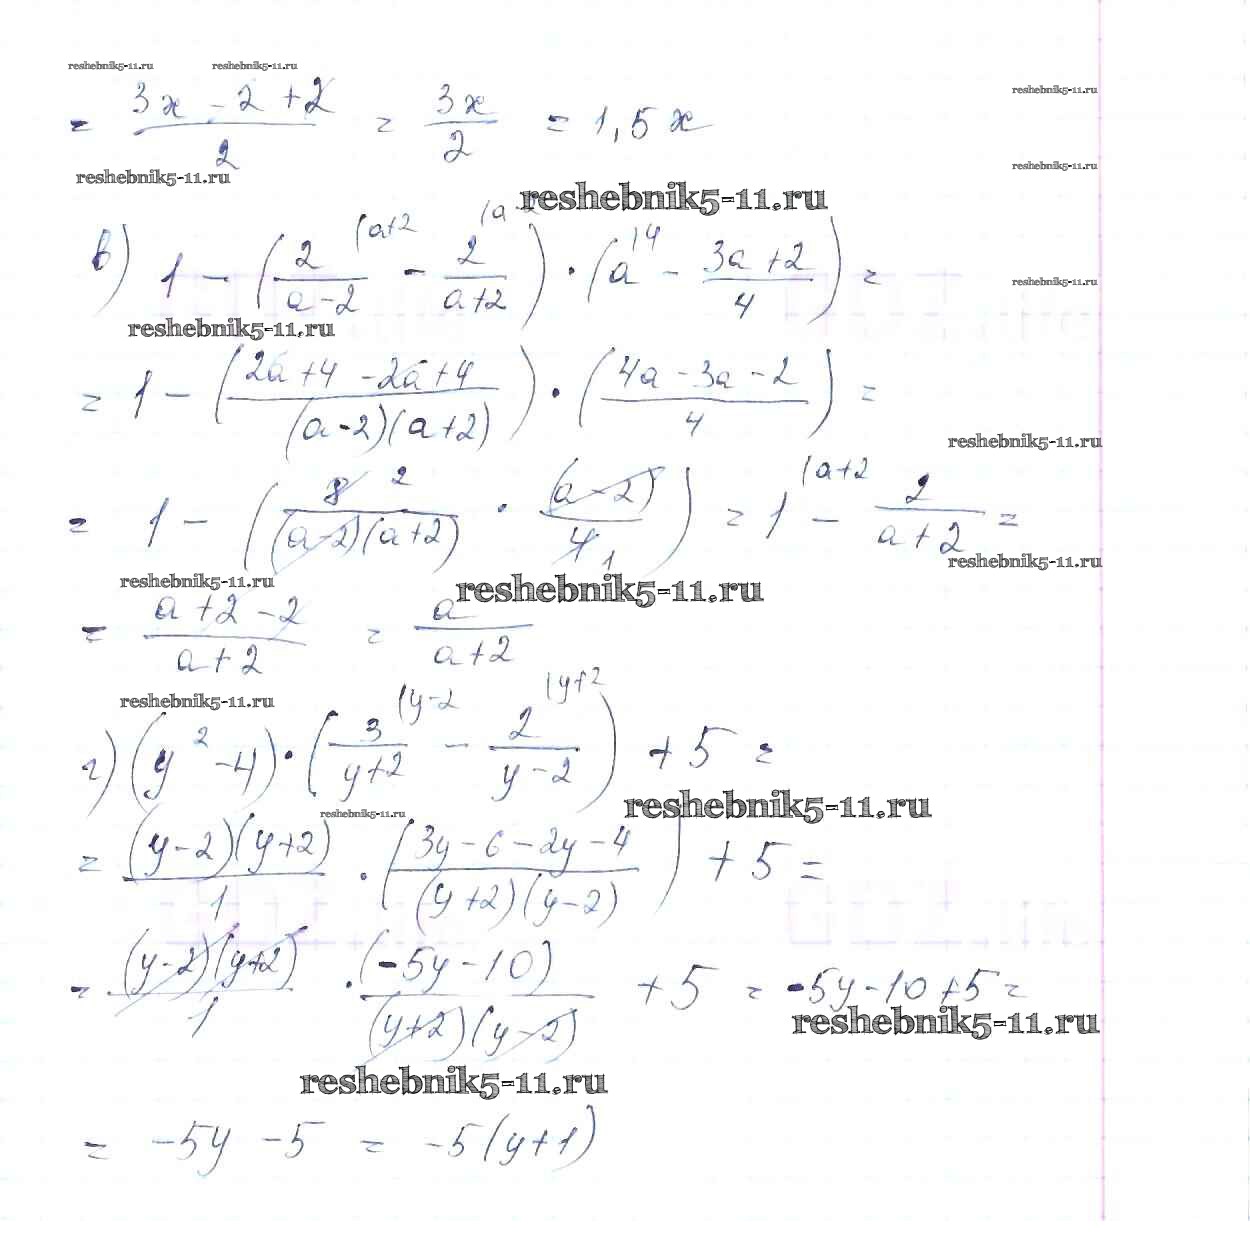 reshebnik5-11.ru reshebnik5-11.ru
reshebnik5-11.ru
= (3x - 2 + 2)/2 = 3x/2 = 1,5x
reshebnik5-11.ru
reshebnik5-11.ru
reshebnik5-11.ru
в) 1 - (2/(a-2) (a+2 - 2/(a+2) (a-2) · (a (4 - (3a+2)/4) =
reshebnik5-11.ru
reshebnik5-11.ru
= 1 - ((2a+4-2a+4)/((a-2)(a+2))) · ((4a-3a-2)/4) =
reshebnik5-11.ru
= 1 - (8 2/((a-2)(a+2)) · (a-2)/4 1) = 1 (a+2 - 2/(a+2) =
reshebnik5-11.ru
reshebnik5-11.ru
reshebnik5-11.ru
= (a+2-2)/(a+2) = a/(a+2)
reshebnik5-11.ru
г) (y² - 4) · (3/(y+2) (y-2 - 2/(y-2) (y+2) + 5 =
reshebnik5-11.ru
reshebnik5-11.ru
= (y-2)(y+2)/1 · ((3y-6-2y-4)/((y+2)(y-2))) + 5 =
= (y-2)(y+2)/1 · (-5y-10)/((y+2)(y-2)) + 5 = -5y-10+5 =
reshebnik5-11.ru
reshebnik5-11.ru
= -5y - 5 = -5(y+1)